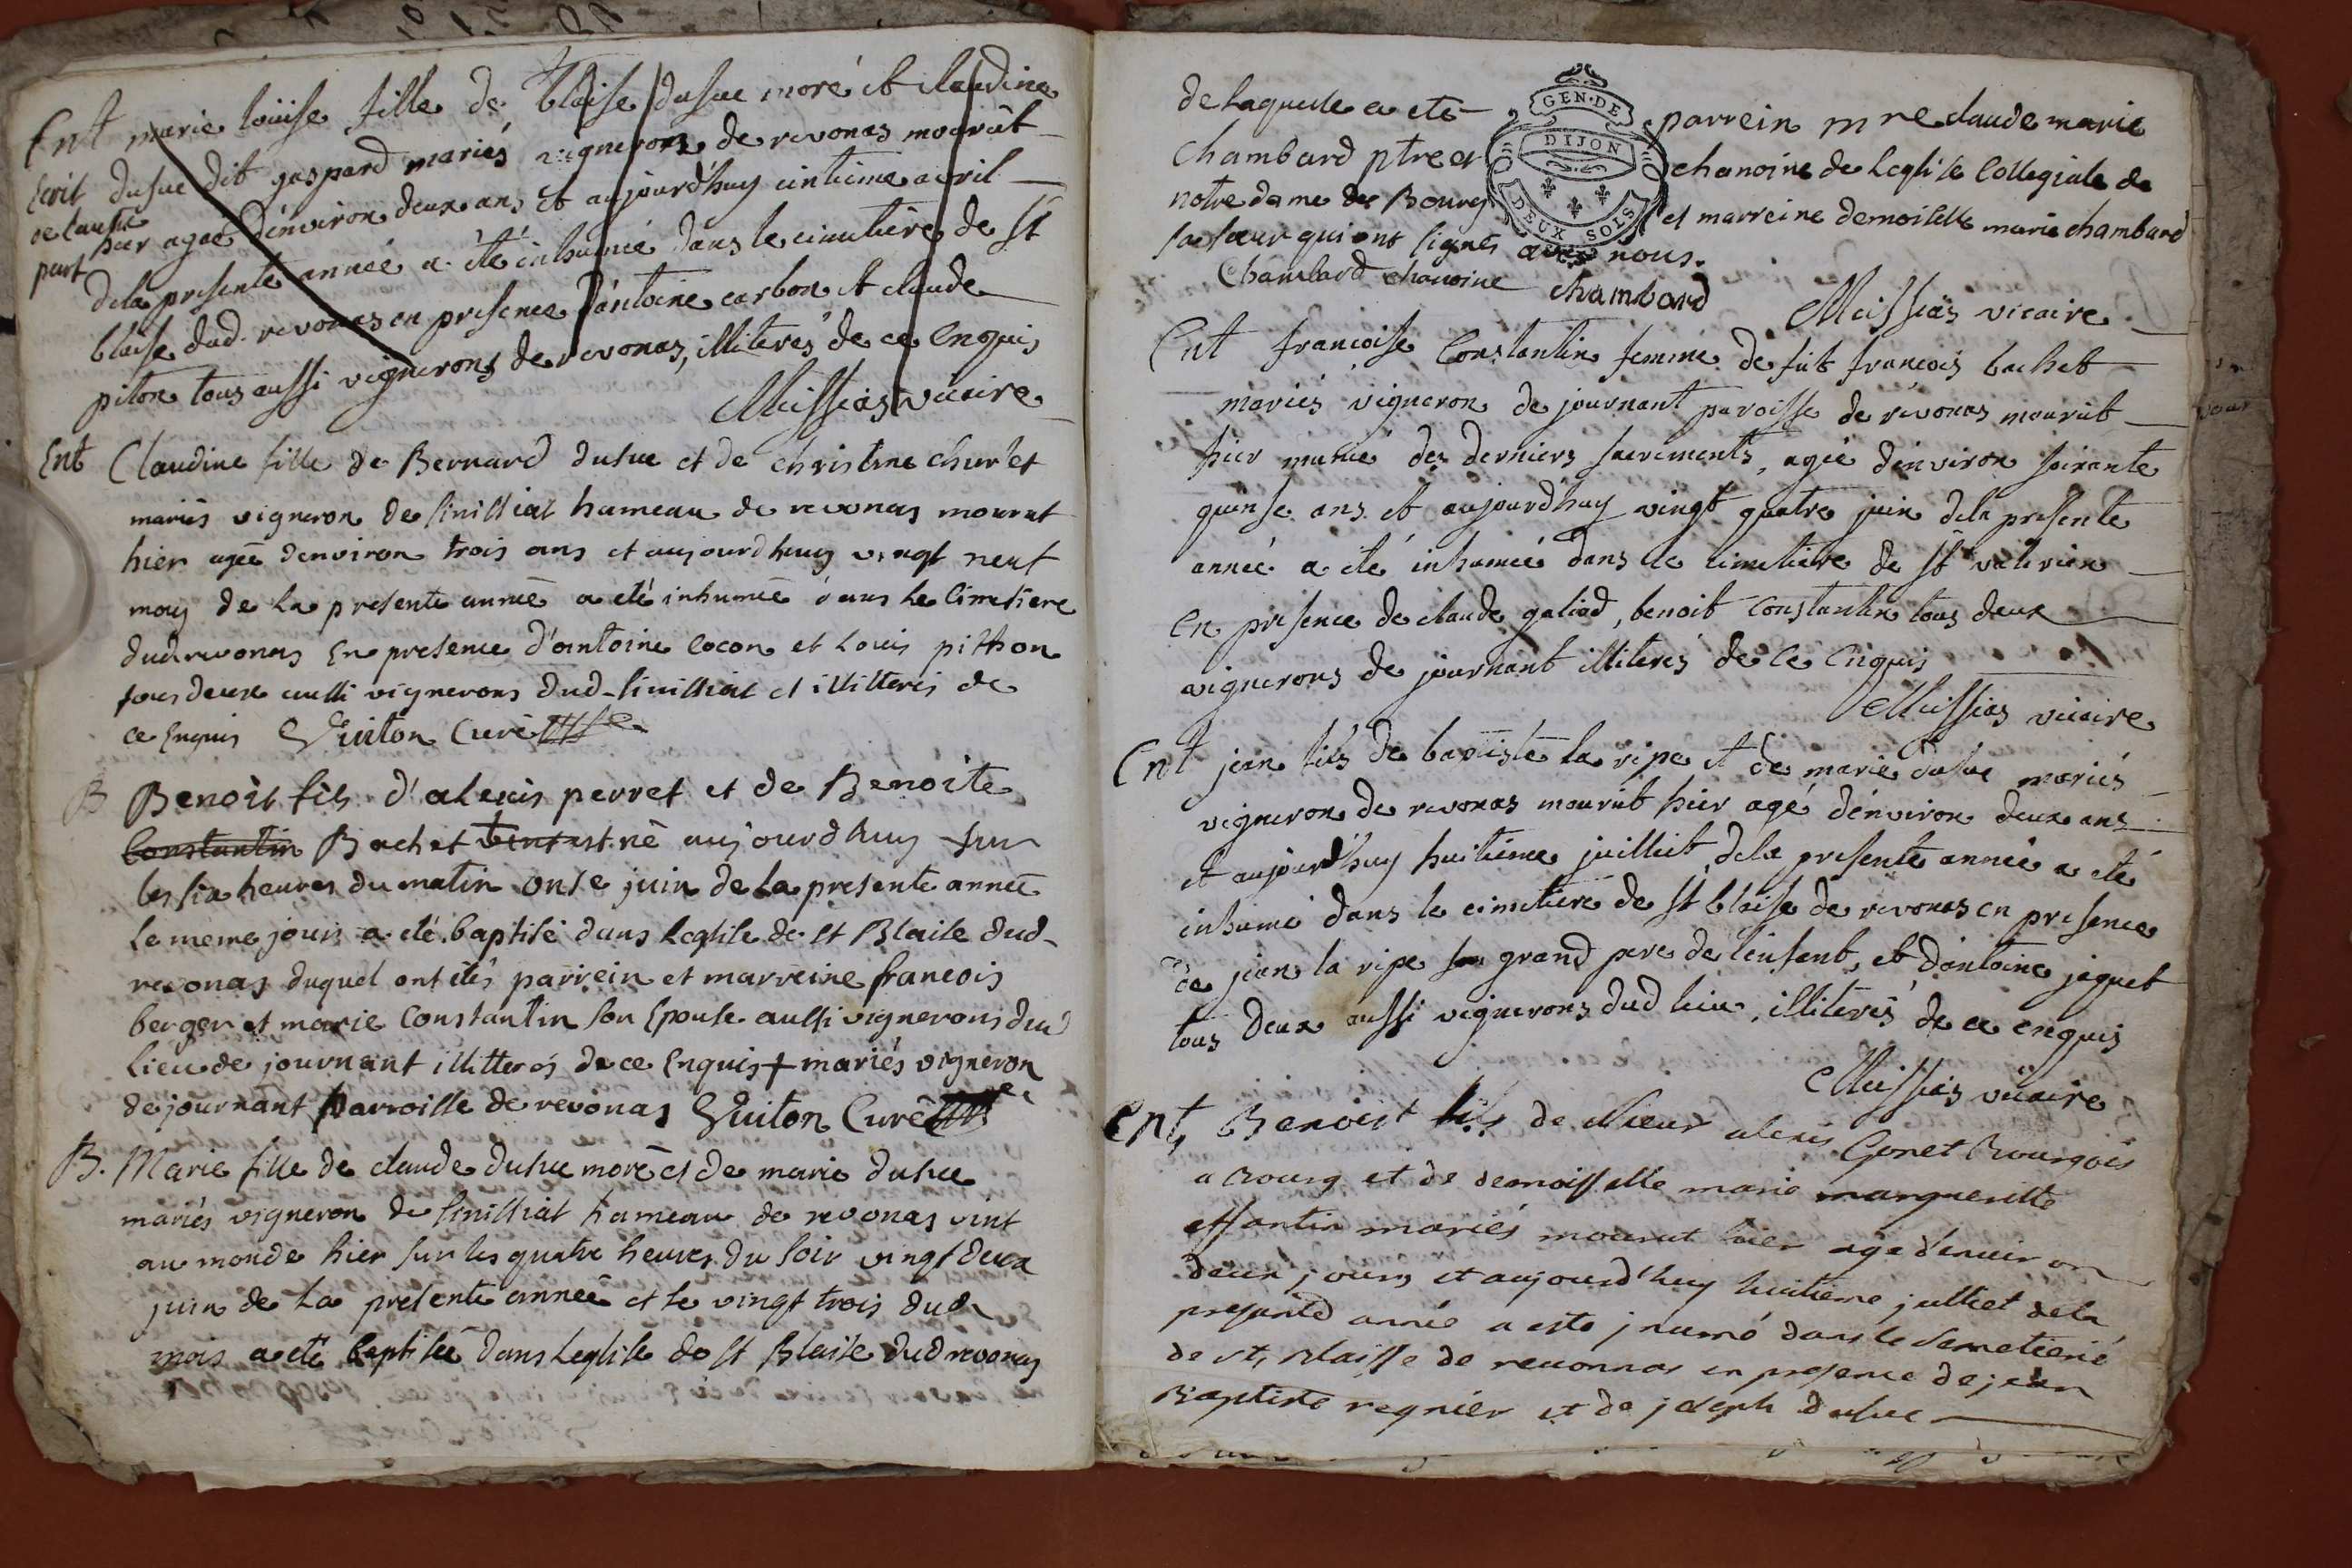 Ent marie loüise fille de blaise dusue moré et claudine
Ecrit dusue dit gaspard mariés vigneron de revonas mourût
de lautre part hier agée dénviron deux ans et aujourdhuy cintieme avril
dela presente année a été inhumée dans le cimetiere de st
blaise dud. revonas en presence dántoine carbon et claude
piton tous aussi vignerons de revonas, illiterés de ce enquis
Meissias vicaire
Ent Claudine fille de Bernard dusue et de christine churlet
mariés vigneron de sinissiat hameau de revonas mourut
hier agée denviron trois ans et aujourdhuy vingt neuf
may de la presente année a eté inhumée dans le Cimetiere
dud revonas En presence d'antoine cocon et Louis pitton
tous deux aussi vignerons dud. sinissiat et illitteres de
ce Enquis Guiton Curé
B Benoit fils d'alexis perret et de Benoite
Constantin Bachet est né aujourdhuy sur
les six heures du matin onse juin de la presente année
le meme jour a eté baptisé dans leglise de st Blaise dud.
revonas duquel ont étés parrein et marreine francois
berger et marie Constantin son Epouse aussi vignerons dud
lieu de journant illitterés de ce Enquis + mariés vigneron
de journant parroisse de revonas Guiton Curé
B. Marie fille de claude dusue moré et de marie dusue
mariés vigneron de sinissiat hameau de revonas vint
au monde hier sur les quatre heures du soir vingt deux
juin de la presente année et le vingt trois dud.
mois a eté baptisée dans leglise de st Blaise dud revonas
de laquelle a eté parrein mre claude marie
GEN. DE
DIJON
DEUX SOLS
chambard ptre et chanoine de leglise Collegiale de
notre dame de Bourg et marreine demoiselle marie chambard
sa soeur qui ont signés avec nous.
Chambard chanoine chambard Meissias vicaire
Ent francoise Constantin femme de fut francois bachet
mariés vigneron de journant paroisse de revonas mourut
hier munie des derniers sacrements, agée dénviron soixante
quinse ans et aujourdhuy vingt quatre juin dela presente
année a été inhumée dans le cimetiere de st valerien
en presence de claude galiod, benoit Constantin tous deux
vignerons de journant illiterés de ce enquis
Meissias vicaire
Ent jean fils de baptiste la ripe et de marie dusue mariés
vigneron de revonas mourût hier agé dénviron deux ans
et aujourdhuy huitieme juillet dela presente année a eté
inhumé dans le cimetiere de st blaise de revonas en presence
de jean la ripe grand pere de lénfant, et dántoine jaquet
tous deux aussi vignerons dud lieu, illiterés de ce enquis
Meissias vicaire
Ent, Benoist fils de sieur alexis Gonet Bourgois
a Bourg et de demoisselle marie margueritte
mariés mourut hier age denviron
deux jours et aujourd'huy huitieme julliet dela
presante année a este jnumé dans le semetiere
de st, Blaisse de revonnas en presence de jean
Baptiste regnier et de joseph dusue